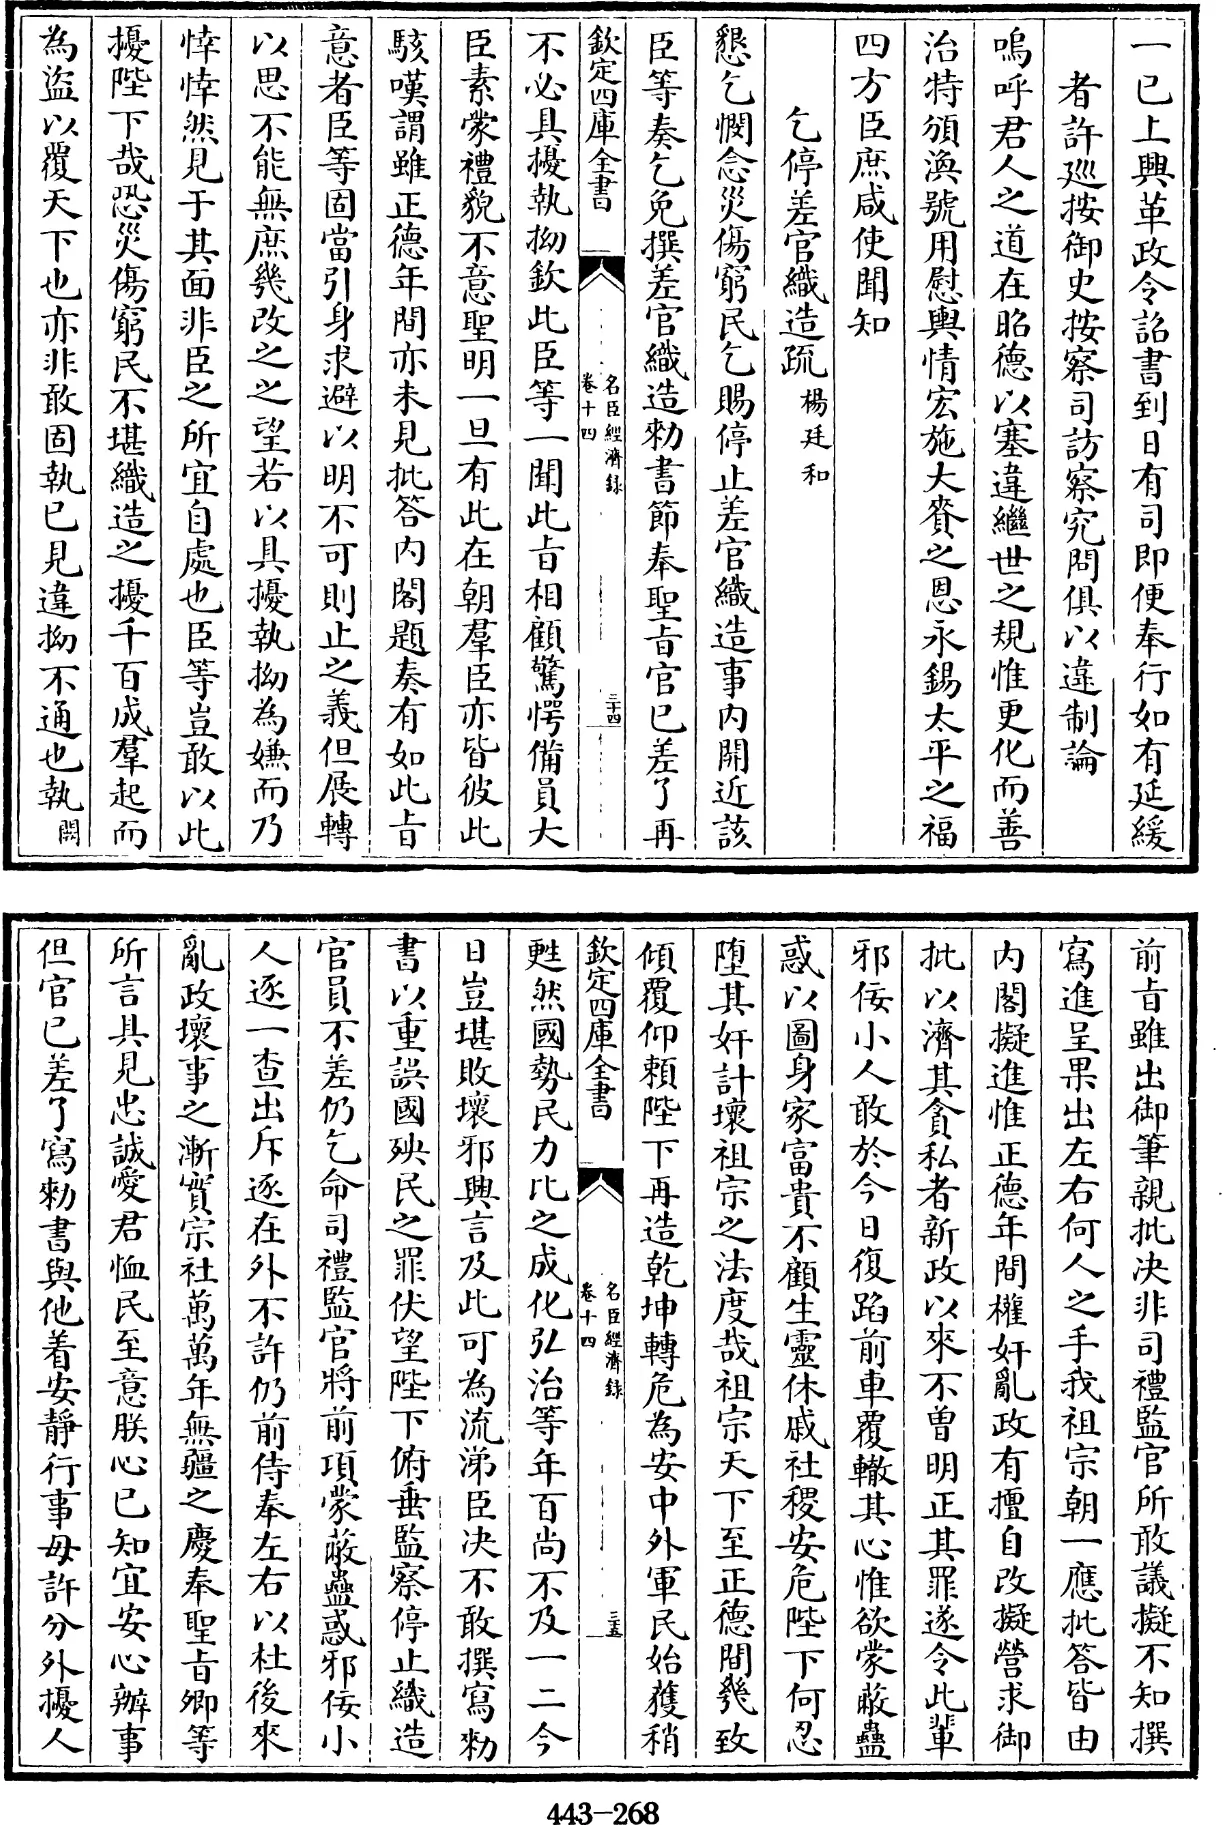 一已上興革政令詔書到日有司即便奉行如有延緩
者許廵按御史按察司訪察究問俱以違制論
嗚呼君人之道在昭德以塞違繼世之規惟更化而善
治特頒渙號用慰輿情宏施大賚之恩永錫太平之福
四方臣庶咸使聞知
乞停差官織造疏 楊廷和
懇乞憫念災傷窮民乞賜停止差官織造事内開近該
臣等奏乞免撰差官織造勅書節奉聖旨官已差了再
欽定四庫全書
名臣經濟録
卷十四
三十四
不必具擾執拗欽此臣等一聞此旨相顧驚愕備員大
臣素䝉禮貌不意聖明一旦有此在朝羣臣亦皆彼此
駭嘆謂雖正德年間亦未見批答内閣題奏有如此旨
意者臣等固當引身求避以明不可則止之義但展轉
以思不能無庶幾改之之望若以具擾執拗為嫌而乃
悻悻然見于其面非臣之所宜自處也臣等豈敢以此
擾陛下哉恐災傷窮民不堪織造之擾千百成羣起而
為盜以覆天下也亦非敢固執已見違拗不通也執闕
前旨雖出御筆親批决非司禮監官所敢議擬不知撰
寫進呈果出左右何人之手我祖宗朝一應批答皆由
内閣擬進惟正德年間權奸亂政有擅自改擬營求御
批以濟其貪私者新政以來不曾明正其罪遂令此輩
邪佞小人敢於今日復蹈前車覆轍其心惟欲䝉蔽蠱
惑以圖身家富貴不顧生靈休戚社稷安危陛下何忍
墮其奸計壞祖宗之法度哉祖宗天下至正德間幾致
傾覆仰頼陛下再造乾坤轉危為安中外軍民始獲稍
欽定四庫全書
名臣經濟録
卷十四
三十五
甦然國勢民力比之成化弘治等年百尚不及一二今
日豈堪敗壞邪興言及此可為流涕臣决不敢撰寫勅
書以重誤國殃民之罪伏望陛下俯垂監察停止織造
官員不差仍乞命司禮監官將前項䝉蔽蠱惑邪佞小
人逐一查出斥逐在外不許仍前侍奉左右以杜後來
亂政壞事之漸實宗社萬萬年無疆之慶奉聖旨卿等
所言具見忠誠愛君恤民至意朕心已知宜安心辦事
但官已差了寫勅書與他着安靜行事毋許分外擾人
443-268